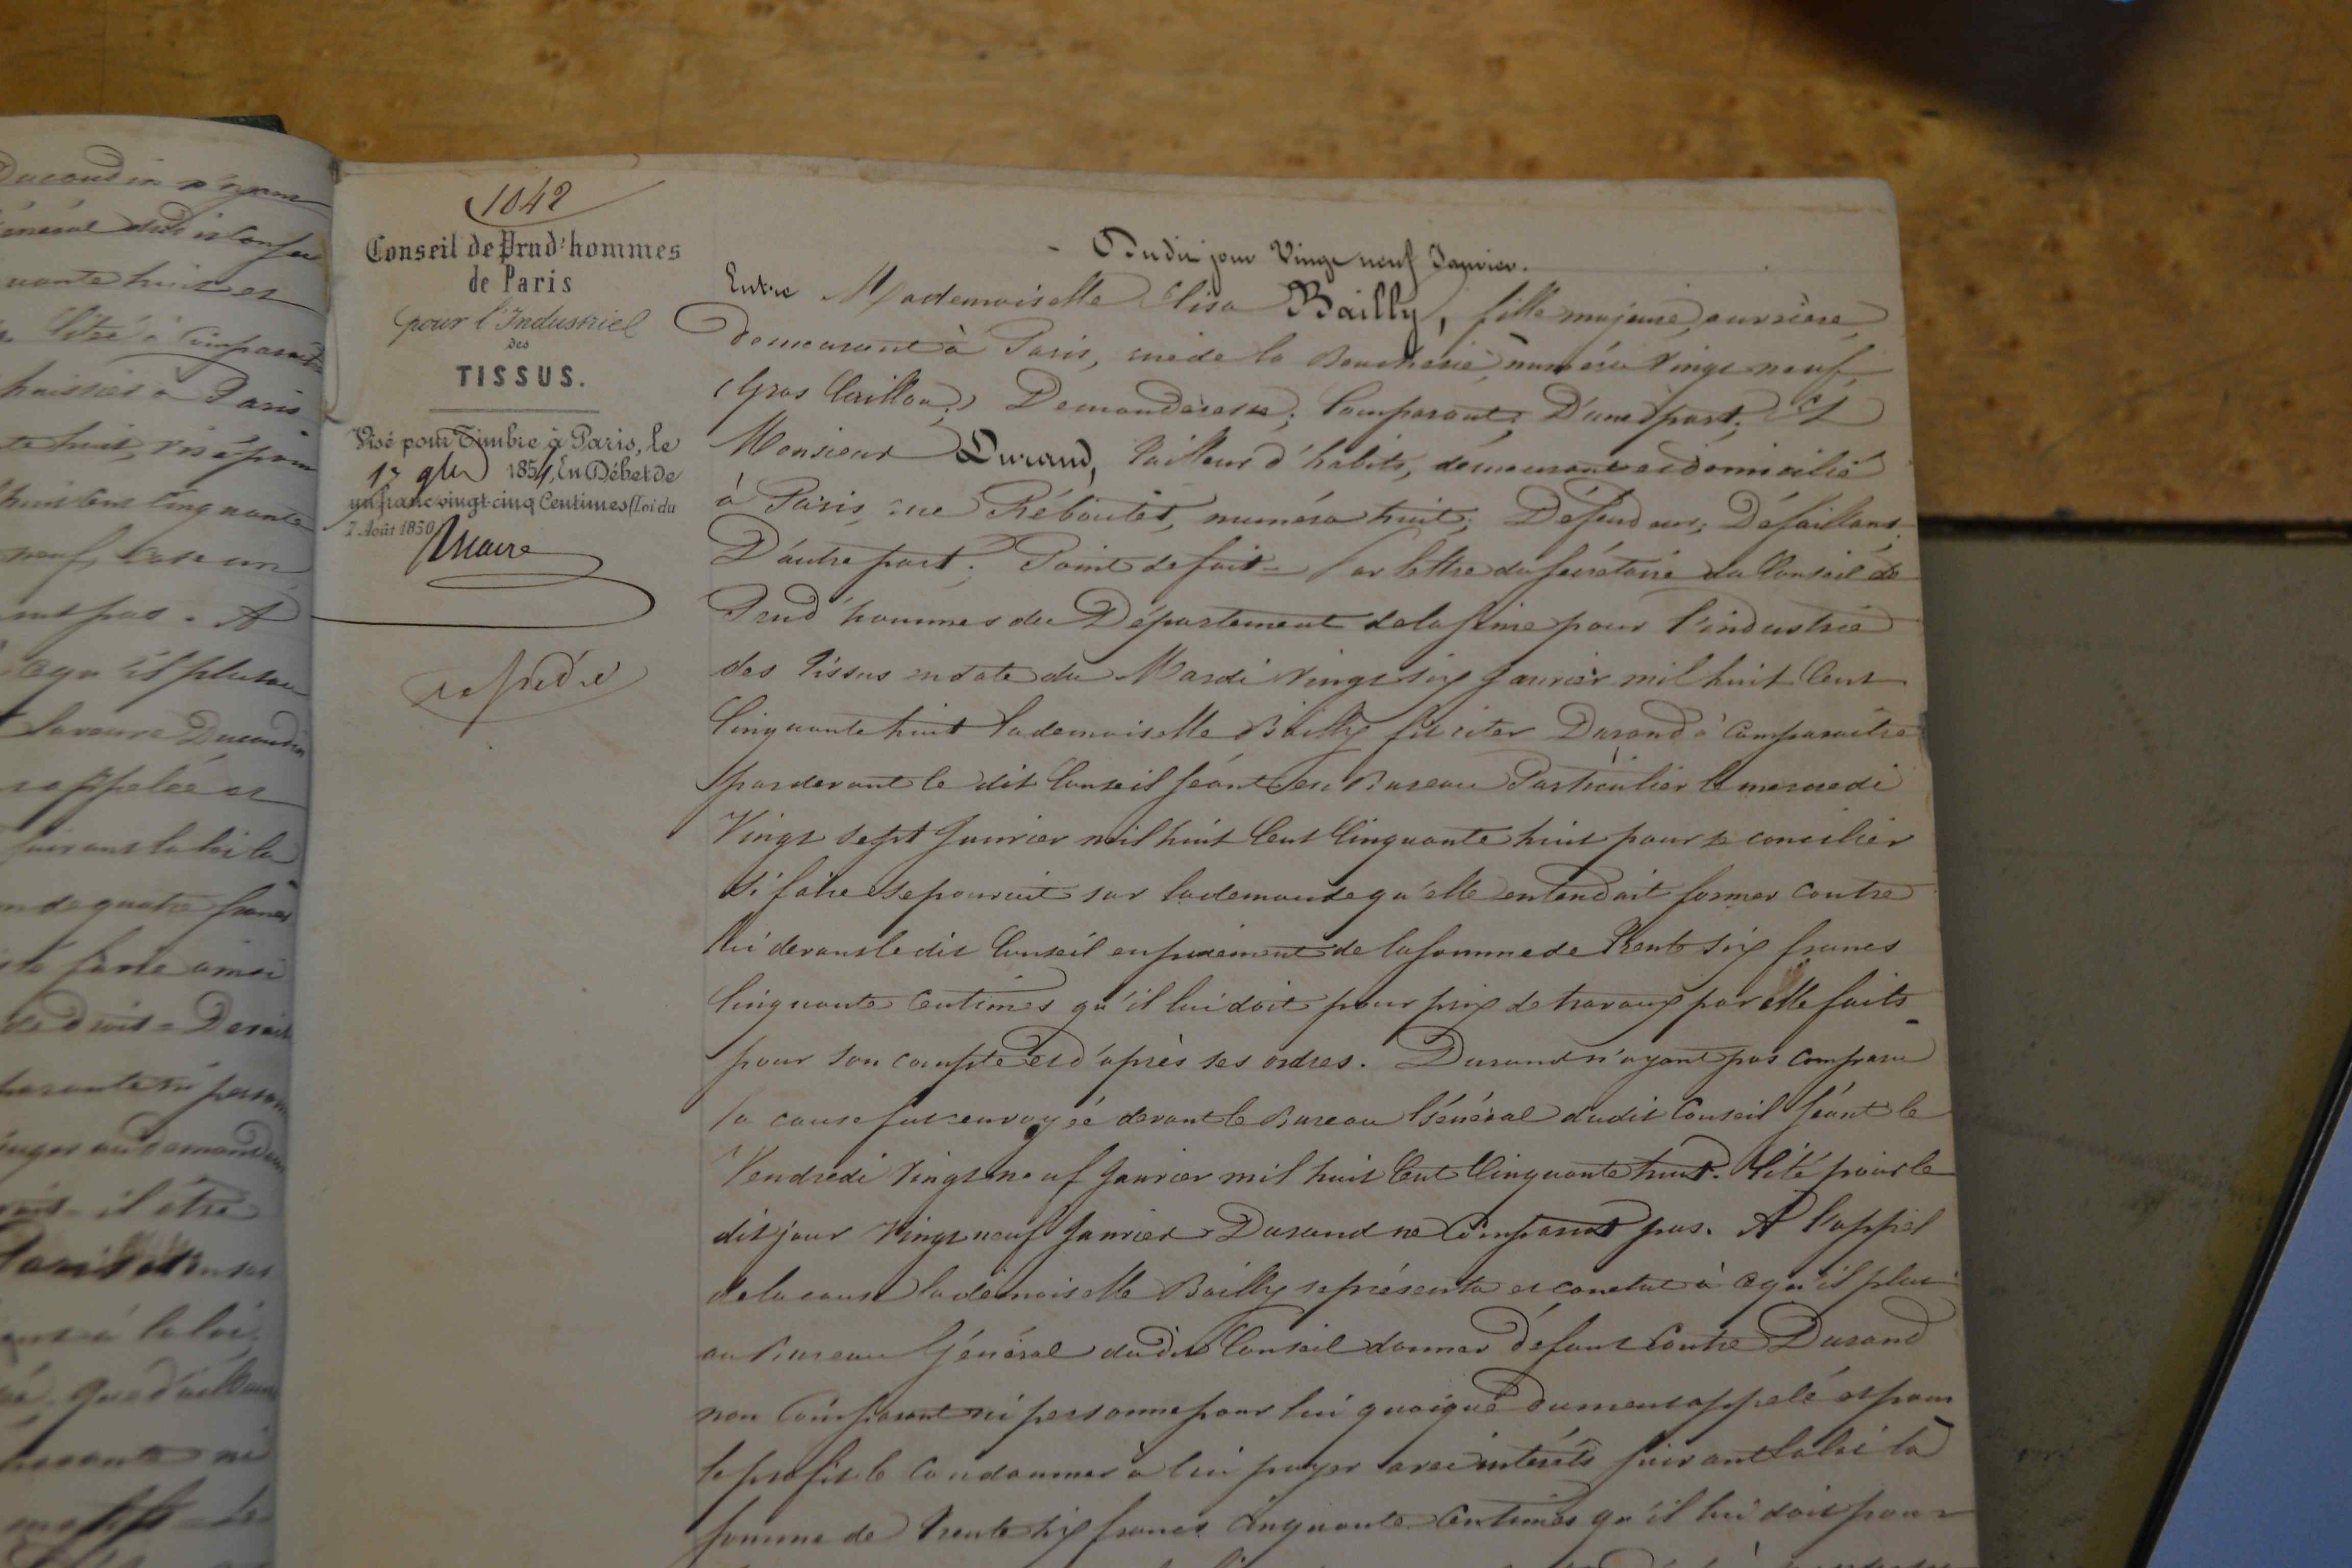 Ducoudin n'ayant
Général dudit Conseil
quante huit et
Cité à Comparaître
huissier à Paris
te huit, visé pour
huit cent cinquante
neuf, case un,
ne comparut pas. A
ce qu'il plut au
Ducoudin
appelé et
suivant la loi la
de quatre francs
faire ainsi
de droit = Devait
adjuger au demandeur
il être
à la loi,
Que d'ailleurs
1042
Conseil de Prud'hommes
de Paris
pour l'Industriel
des
TISSUS.
Visé pour Timbre à Paris, le
185 En Débet de
un franc vingt-cinq Centimes (Loi du
7 Août 1850
- Dudit jour Vingt neuf Janvier.
Entre Mademoiselle Elisa Bailly, fille majeure, ouvrière,
demeurant à Paris, rue de la Boucherie, numéro Vingt neuf,
(Gros Caillou;) Demanderesse; Comparant; D'une part; Et
Monsieur Durand, Tailleur d'habits, demeurant et domicilié
à Paris, rue Rébouté, numéro huit; Défendeur; Défaillant;
D'autre part. Point de fait = Par lettre du secrétaire du Conseil de
Prud'hommes du Département de la Seine pour l'industrie
des Tissus en date du Mardi Vingt six Janvier mil huit Cent
Cinquante huit la demoiselle Bailly fit citer Durand à Comparaître
pardevant le dit Conseil séant en Bureau Particulier le mercredi
Vingt sept Janvier mil huit Cent Cinquante huit pour se concilier
si faire se pouvait sur la demande qu'elle entendait former contre
lui devant le dit Conseil en paiement de la somme de Trente six francs
Cinquante Centimes qu'il lui doit pour prix de travaux par elle faits
pour son compte et d'après ses ordres. Durand n'ayant pas comparu
la cause fut envoyée devant le Bureau Général dudit Conseil séant le
Vendredi Vingt neuf Janvier mil huit Cent Cinquante huit. Cité pour le
dit jour Vingt neuf Janvier Durand ne Comparut pas. A l'appel
de la cause la demoiselle Bailly se présenta et conclut à ce qu'il plut
au Bureau Général dudit Conseil donner défaut Contre Durand
non Comparant ni personne pour lui quoique dument appelé et pour
le profit le Condamner à lui payer avec intérêts suivant la loi la
somme de Trente six francs Cinquante Centimes qu'il lui doit pour